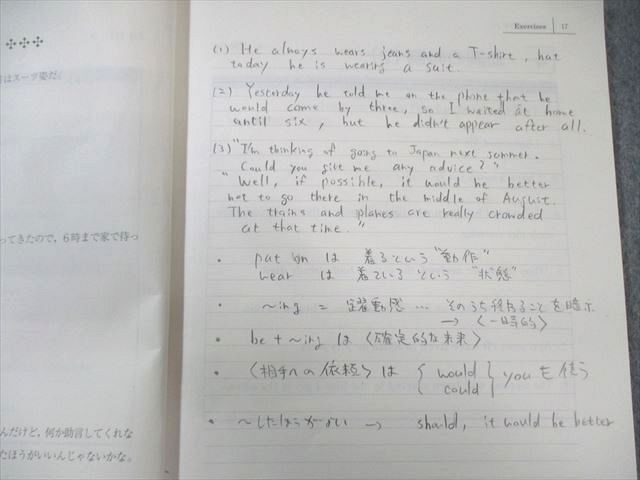 Exercises 17
はスーツ姿だ。
ってきたので，6時まで家で待っ
んだけど，何か助言してくれな
たほうがいいんじゃないかな。
(1) He always wears jeans and a T-shirt, but
today he is wearing a suit.
(2) Yesterday he told me on the phone that he
would come by three, so I waited at home
until six, but he didn't appear after all.
(3) "I'm thinking of going to Japan next summer.
Could you give me any advice?"
"Well, if possible, it would be better
not to go there in the middle of August.
The trains and planes are really crowded
at that time."
・ put on は 着るという "動作"
wear は 着ている という "状態"
・ 〜ing = 躍動感 … そのうち終わることを暗示
→ 〈一時的〉
・ be + 〜ing は〈確定的な未来〉
・ 〈相手への依頼〉は { would could } you を使う
・ 〜したほうがよい → should, it would be better